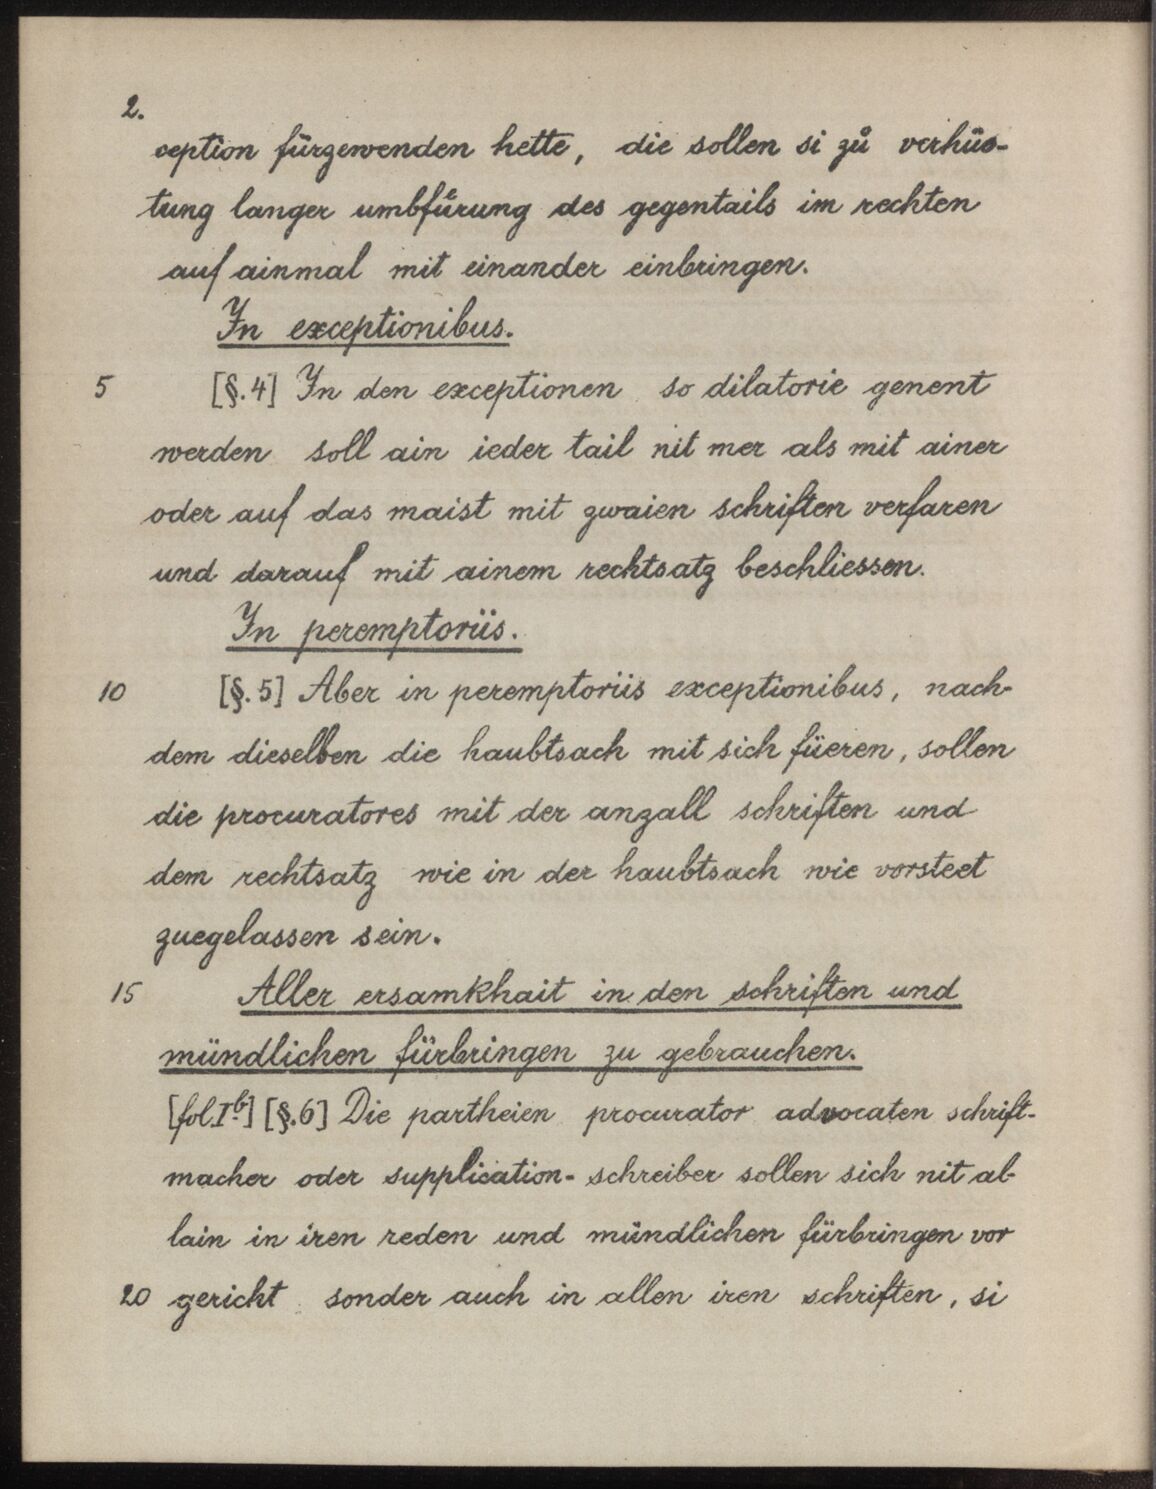 2.
ception fürgewenden hette, die sollen si zů verhüe-
tung langer umbfürung des gegentails im rechten
auf ainmal mit einander einbringen.
In exceptionibus.
5 [§.4] In den exceptionen so dilatorie genent
werden soll ain ieder tail nit mer als mit ainer
oder auf das maist mit zwaien schriften verfaren
und darauf mit ainem rechtsatz beschliessen.
In peremptoriis.
10 [§.5] Aber in peremptoriis exceptionibus, nach-
dem dieselben die haubtsach mit sich füeren, sollen
die procuratores mit der anzall schriften und
dem rechtsatz wie in der haubtsach wie vorsteet
zuegelassen sein.
15 Aller ersamkhait in den schriften und
mündlichen fürbringen zu gebrauchen.
[fol.I.b] [§.6] Die partheien procurator advocaten schrift-
macher oder supplication-schreiber sollen sich nit al-
lain in iren reden und mündlichen fürbringen vor
20 gericht sonder auch in allen iren schriften, si